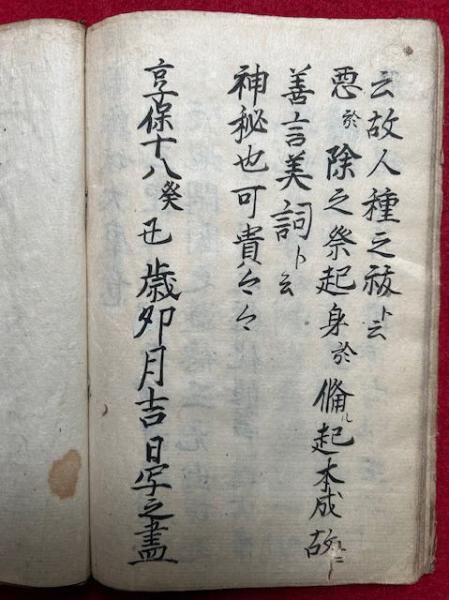 云故人種之祓ト云
悪於除之祭起身於備ル起本成故ニ
善言美詞ト云
神秘也可貴々々
享保十八癸丑歳卯月吉日写之畫